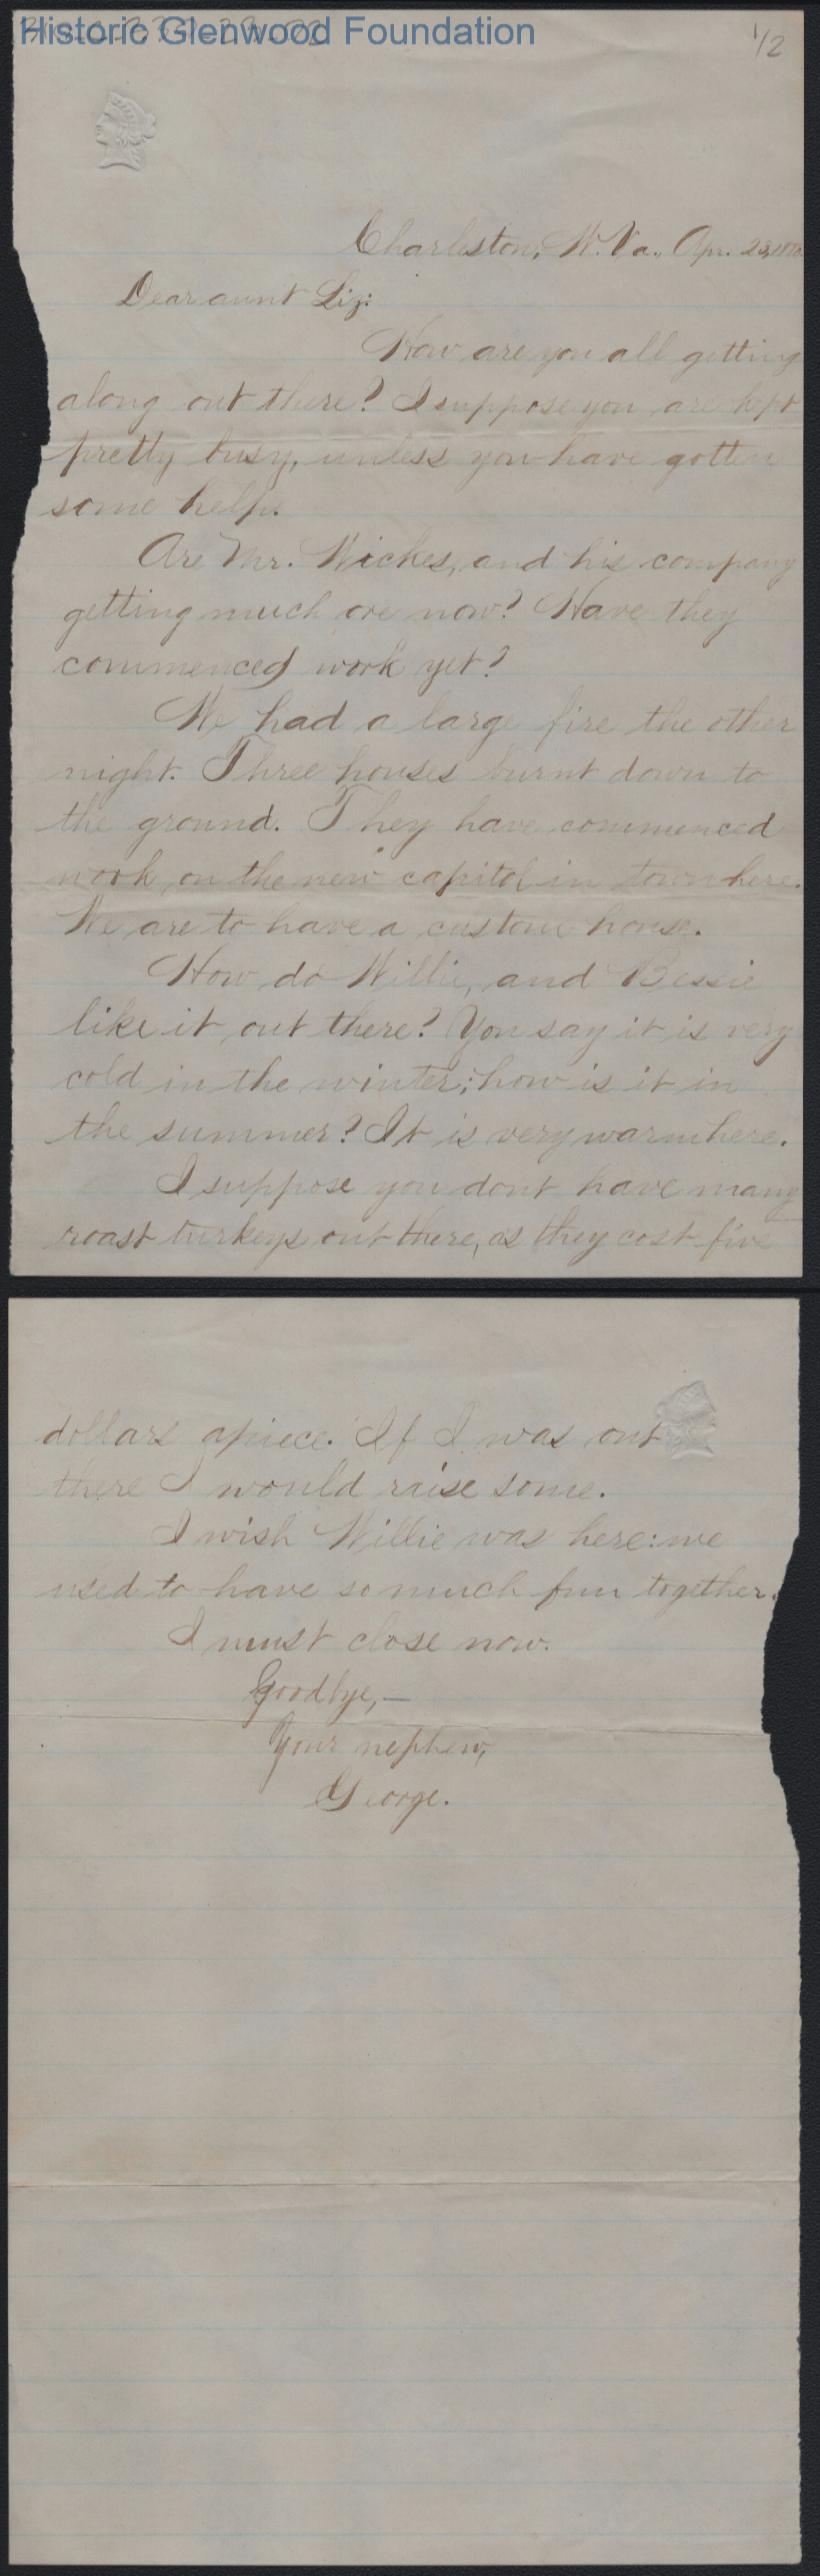 Historic Glenwood Foundation
1/2
Charleston, W. Va., Apr. 23,
Dear aunt Liz:
How are you all getting
along out there? I suppose you are kept
pretty busy, unless you have gotten
some help.
Are Mr. Wickes, and his company
getting much ore now? Have they
commenced work yet?
We had a large fire the other
night. Three houses burnt down to
the ground. They have commenced
work on the new capitol in town here.
We are to have a custom house.
How do Willie, and Bessie
like it out there? You say it is very
cold in the winter; how is it in
the summer? It is very warm here.
I suppose you dont have many
roast turkeys out there, as they cost five
dollars apiece. If I was out
there I would raise some.
I wish Willie was here: we
used to have so much fun together.
I must close now.
Goodbye,—
Your nephew,
George.